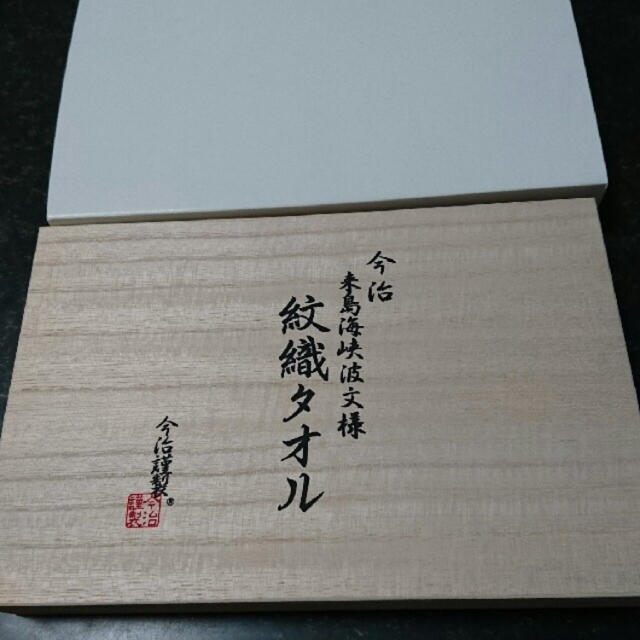 今治
来島海峡波文様
紋織タオル
今治謹製®
今治謹製